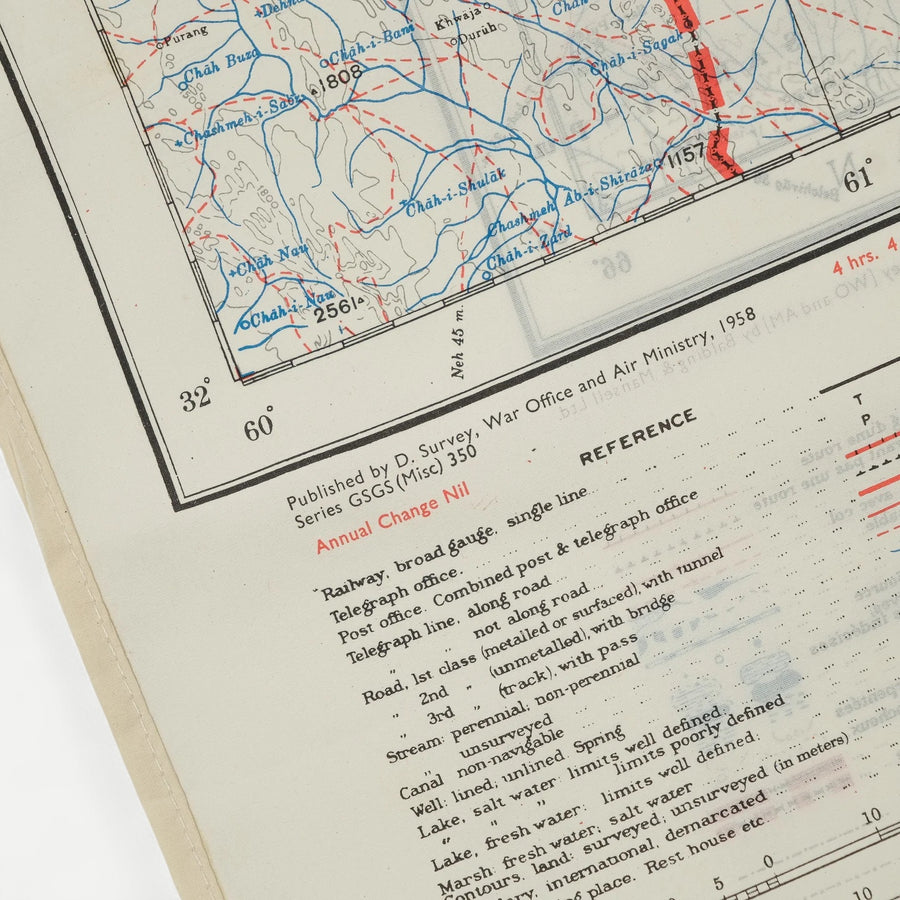 Dehna
Purang
Khwaja
Duruh
Chāh
Chāh Buza
Chāh-i-Bani
1808
Chāh-i-Sagak
Chashmeh-i-Sabz
1157
Chāh-i-Shulāk
Ab-i-Shirāza
Chashmeh
Chāh-i-Zard
Chāh Nau
Chāh-i-Nau
2561
1800
61°
66°
Neh 45 m.
32°
60°
4 hrs. 4
Published by D. Survey, War Office and Air Ministry, 1958
Series GSGS (Misc) 350
Annual Change Nil
REFERENCE
Railway, broad gauge, single line
Telegraph office.
T
Post office. Combined post & telegraph office
P
Telegraph line, along road
" " not along road
Road, 1st class (metalled or surfaced), with tunnel
" 2nd " (unmetalled), with bridge
" 3rd " (track), with pass
Stream: perennial; non-perennial
" unsurveyed
Canal non-navigable
Well: lined; unlined Spring
Lake, salt water: limits well defined.
" " " limits poorly defined
Lake, fresh water: limits well defined.
Marsh: fresh water; salt water
Contours, land: surveyed; unsurveyed (in meters)
international, demarcated
place. Rest house etc
10
5 0
10